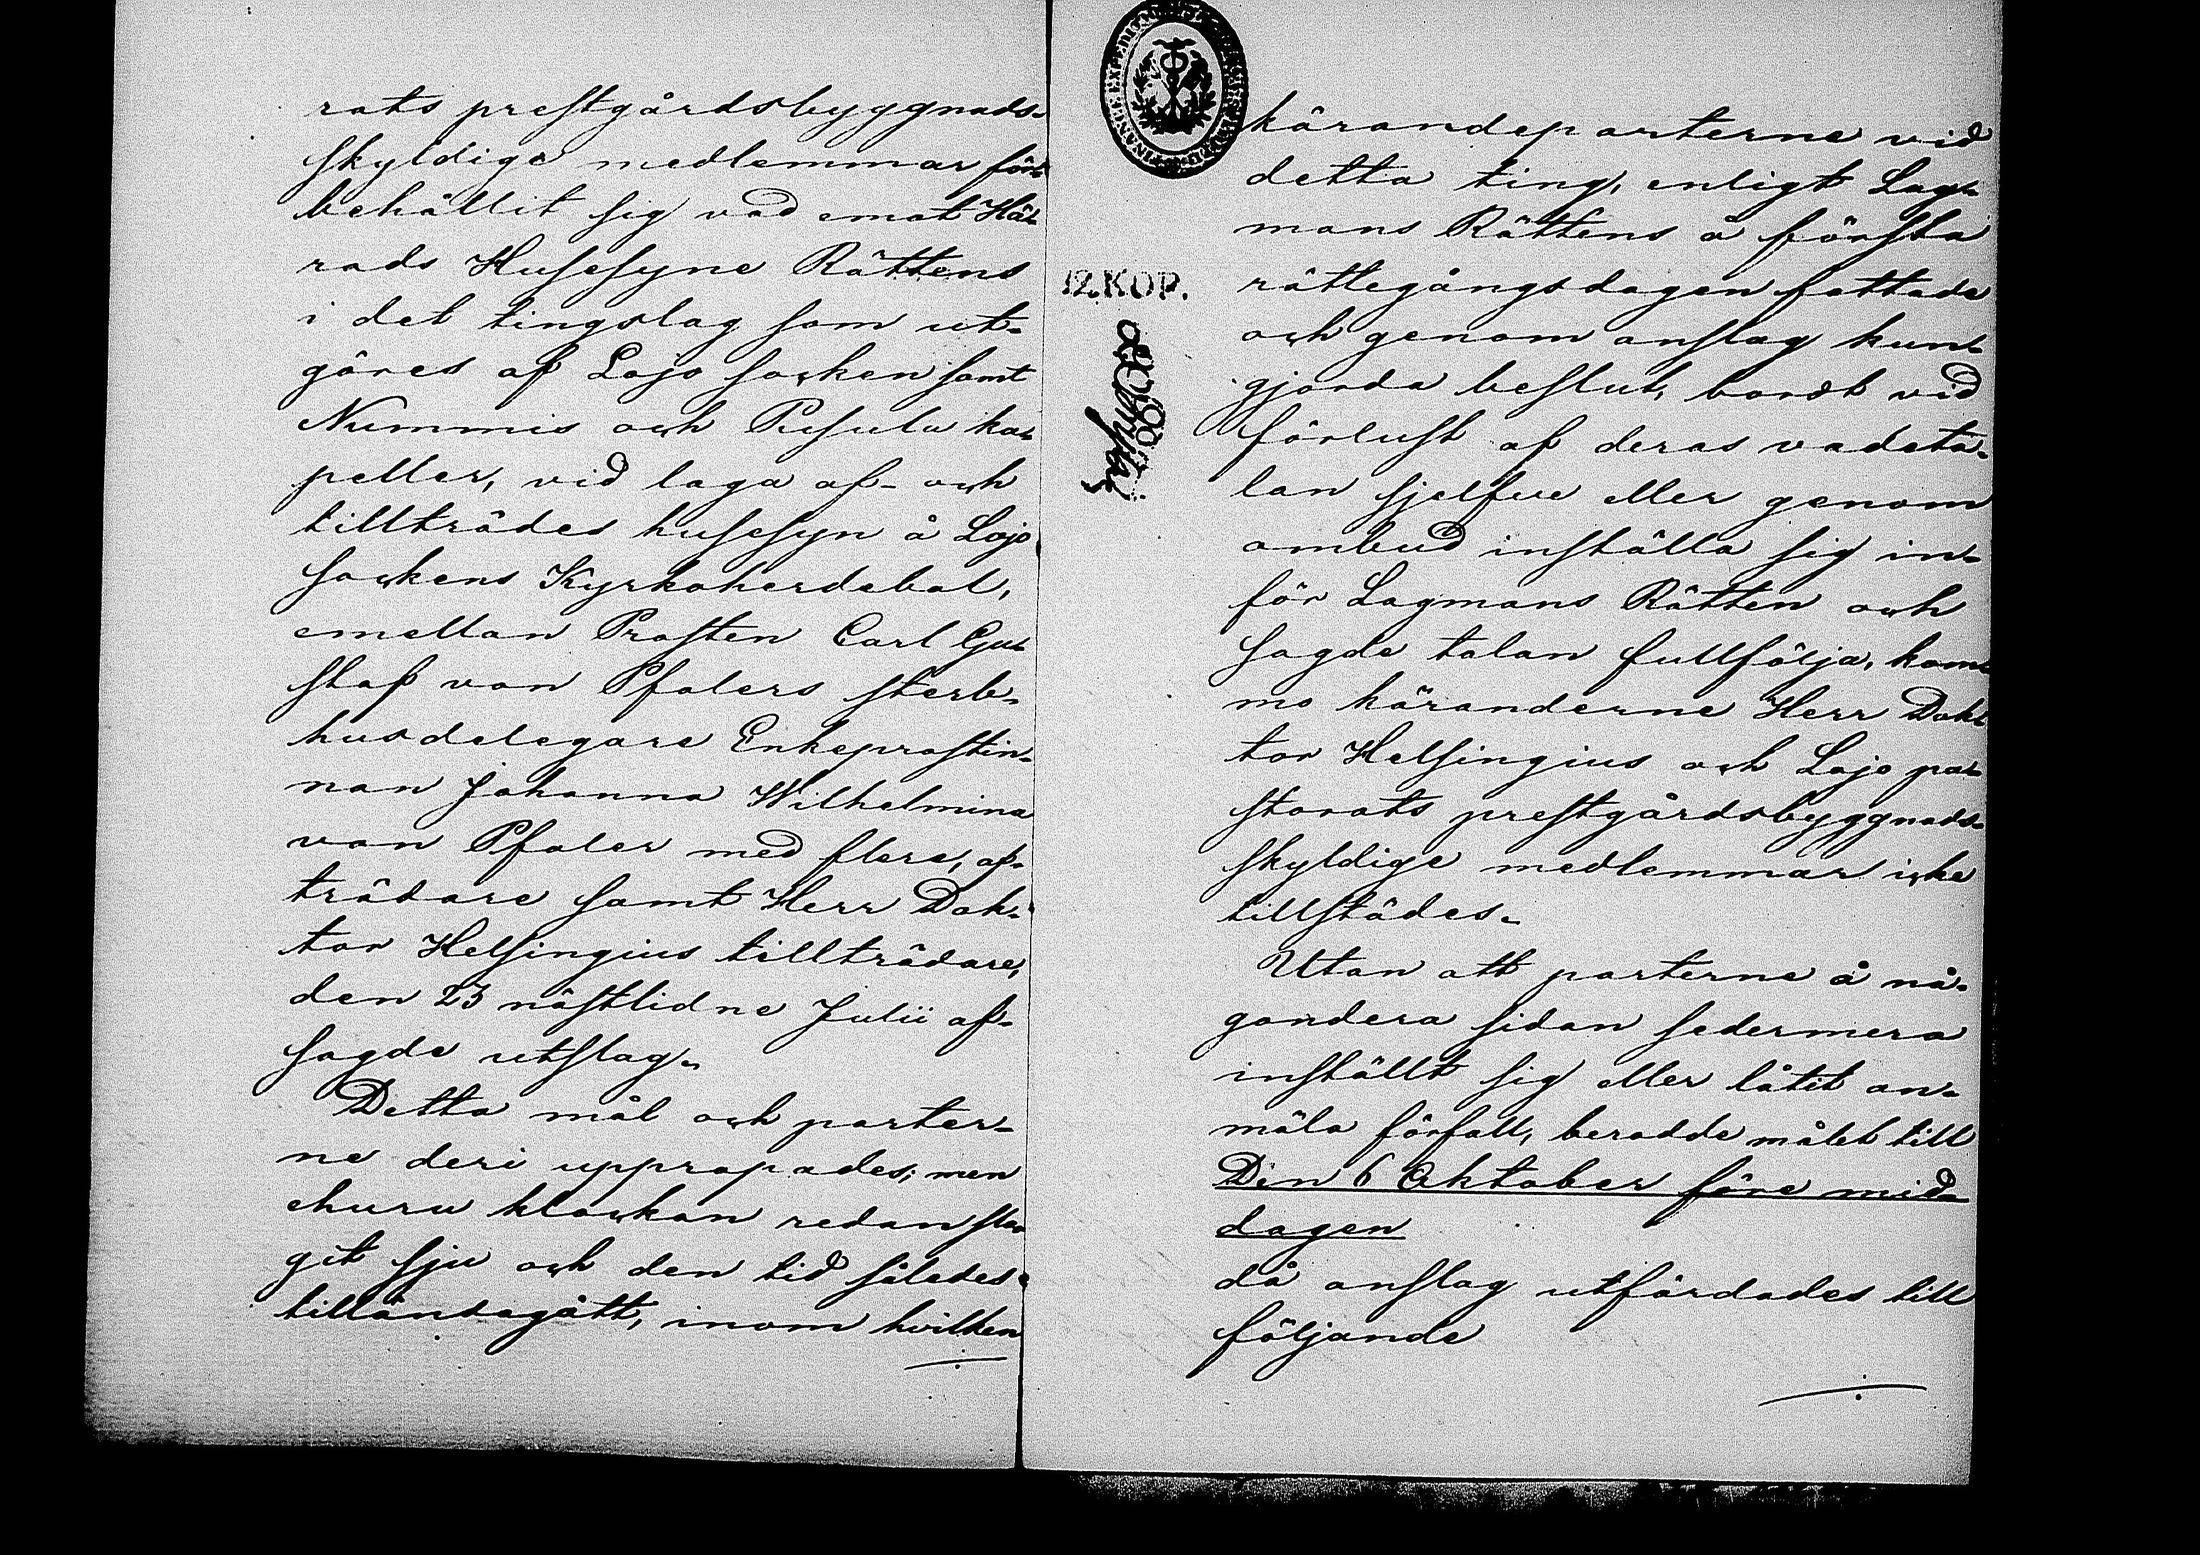 rats prestgårdsbyggnads-
skyldige medlemmar för-
behållit sig vad emot Hä-
rads Husesyne Rättens
i det tingslag som ut-
göres af Lojo socken samt
Nummis och Pusula ka-
peller, vid laga af- och
tillträdes husesyn å Lojo
sockens Kyrkoherdebol,
emellan Prosten Carl Gu-
staf von Pfalers sterb-
husdelegare Enkeprostin-
nan Johanna Wilhelmina
von Pfaler med flere, af-
trädare samt Herr Dok-
tor Helsingius tillträdare,
den 23 nästlidne Julii af-
sagde utslag.
Detta mål och parter-
ne deri uppropades; men
ehuru klockan redan sla-
git sju och den tid således
tilländagått, inom hvilken
kärandeparterne vid
detta ting, enligt Lag-
mans Rättens å första
12.KOP.
rättegångsdagen fattade
och genom anslag kun-
gjorda beslut, bordt vid
förlust af deras vadeta-
lan sjelfve eller genom
ombud inställa sig in-
för Lagmans Rätten och
sagde talan fullfölja, kom-
mo käranderne Herr Dok-
tor Helsingius och Lojo pa-
storats prestgårdsbyggnads-
skyldige medlemmar icke
tillstädes.
Utan att parterne å nå-
gondera sidan sedermera
inställt sig eller låtit an-
mäla förfall, berodde målet till
Den 6 Oktober före mid-
dagen
då anslag utfärdades till
följande